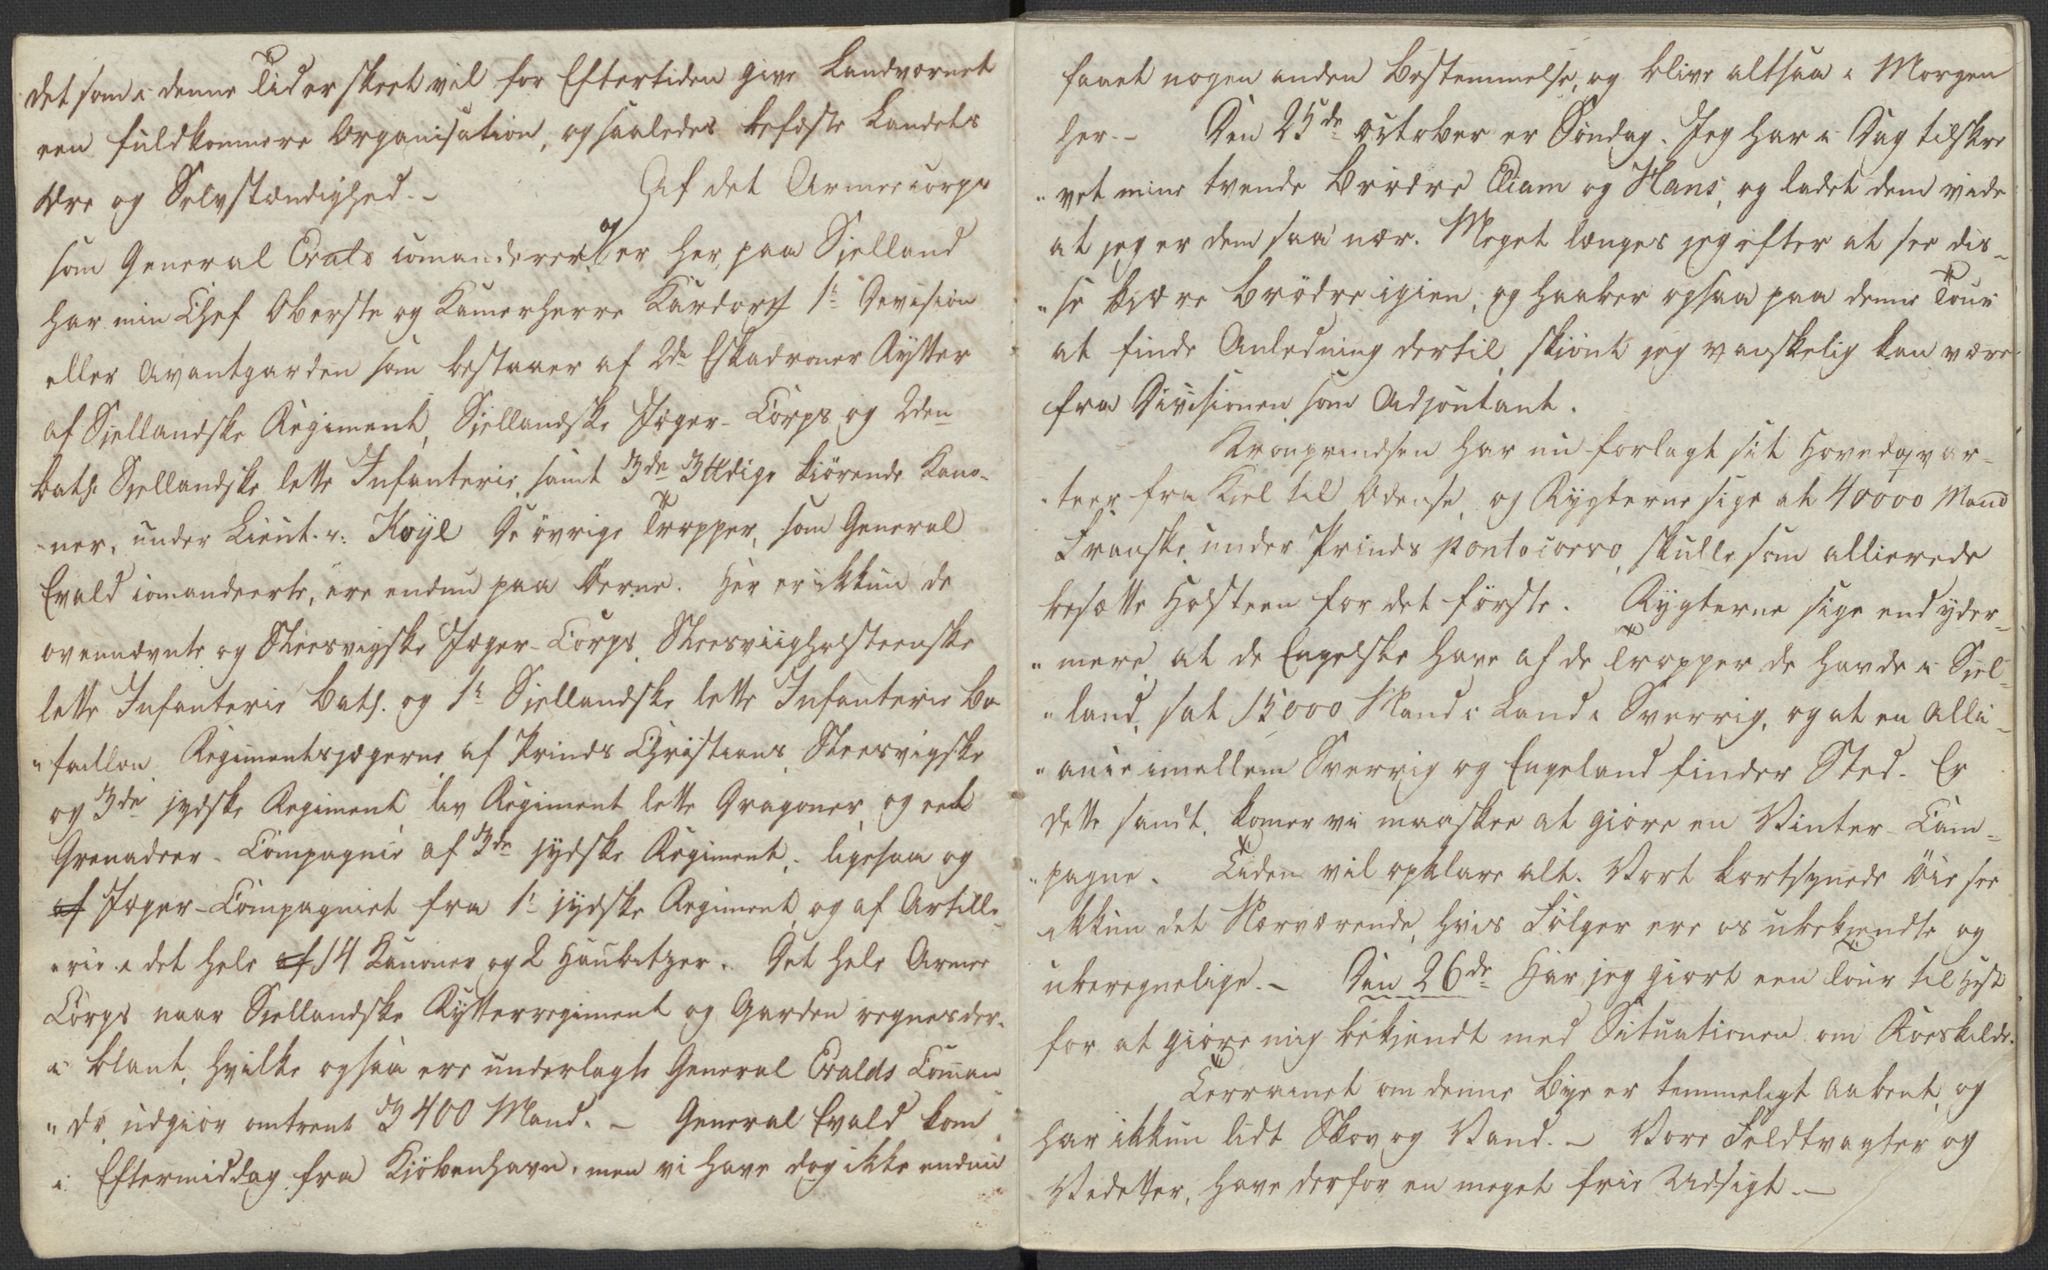 det som i denne Tid er skeet vil for Eftertiden give Landværnet
een fuldkommere Organisation, og saaledes befæste Landets
Ære og Selvstændighed. - Af det Armeecorps
som General Evald comanderer og er her paa Sjelland
har min Chef Oberste og Kamerherre Kardorff 1e Devision
eller Avantgarden som bestaaer af 2de Eskadroner Rytter
af Sjellandske Regiment, Sjellandske Jæger-Corps og 2den
Batl. Sjellandske lette Infanterie, samt 3de 3℔dige kiørende Kano-
ner, under Lieut. v: Køyl De övrige Tropper, som General
Evald comandeerte, ere endnu paa Øerne. Her er ikkun de
ovennævnte og Sleesvigske Jæger-Corps, Sleesviigholsteenske
lette Infanterie Batl. og 1e Sjellandske lette Infanterie Ba-
"taillon, Regimentsjægerne af Prinds Christians, Sleesvigske
og 3de jydske Regiment liv Regiment lette Dragoner, og eet
Grenadeer-Compagnie af 3de jydske Regiment, ligesaa og
af Jæger-Compagniet fra 1e jydske Regiment, og af Artille-
"rie i det hele af 14 Kanoner og 2 Haubitzer. Det hele Armee
Corps naar Sjellandske Rytterregiment og Garden regnes der-
i blant, hvilke ogsaa ere underlagte General Evalds Coman
"do, udgiör omtrent 3400 Mand. - General Evald kom
i Eftermiddag fra Kiöbenhavn, men vi have dog ikke endnu
faaet nogen anden Bestemmelse, og blive altsaa i Morgen
her. - Den 25de October er Söndag. Jeg har i Dag tilskre
"vet mine tvende Brödre Diam og Hans, og ladet dem vide
at jeg er dem saa nær. Meget længes jeg efter at see dis-
"se kiære Brödre igien, og haaber ogsaa paa denne Tour
at finde Anledning dertil, skiönt jeg vanskelig kan være
fra Divisionen som Adjoutant.
Kronprindsen har nu forlagt sit Hovedqvar-
"teer fra Kiel til Odense, og Rygterne sige at 40000 Mand
Franske under Prinds Pontocorvo, skulle som allierede
besætte Holsteen for det förste. Rygterne sige end yder-
"mere, at de Engelske have af de Tropper de havde i Sjel-
"land, sat 15000 Mand i Land i Sverrig, og at en Alli-
"ance imellem Sverrig og Engeland finder Sted. Er
dette sandt, komer vi maaskee at giöre en Vinter-Cam-
"pagne. Tiden vil opklare alt. Vort kortsynede Öie see
ikkun det Nærværende, hvis Fölger ere os ubekjendte og
uberegnelige. - Den 26de Har jeg giort een Tour til Hest
for at giöre mig bekjendt med Situationen om Roeskilde.
Terrainet om denne Bye er temmeligt aabent, og
har ikkun lidt Skov og Vand. - Vore Feldtvagter og
Vedetter, have derfor en meget frie Udsigt. -